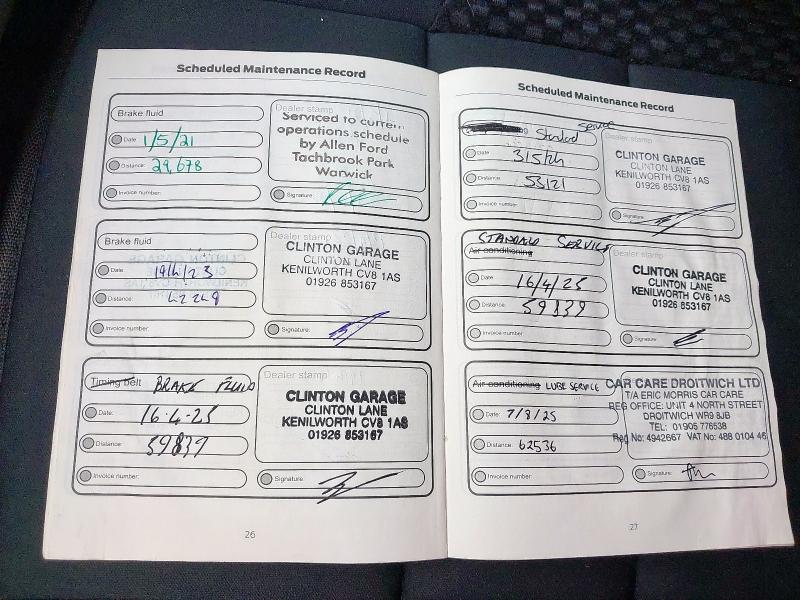 Scheduled Maintenance Record
Brake fluid
Date: 1/5/21
Distance: 29,678
Invoice number:
Dealer stamp
Serviced to current
operations schedule
by Allen Ford
Tachbrook Park
Warwick
Signature:
Brake fluid
Date: 19/4/23
Distance: 42249
Invoice number:
Dealer stamp
CLINTON GARAGE
CLINTON LANE
KENILWORTH CV8 1AS
01926 853167
Signature:
Timing belt BRAKE FLUID
Date: 16-4-25
Distance: 59839
Invoice number:
Dealer stamp
CLINTON GARAGE
CLINTON LANE
KENILWORTH CV8 1AS
01926 853167
Signature:
26
Scheduled Maintenance Record
Standard Service
Date: 3/5/24
Distance: 53121
Invoice number:
Dealer stamp
CLINTON GARAGE
CLINTON LANE
KENILWORTH CV8 1AS
01926 853167
Signature:
STANDARD SERVICE
Air conditioning
Date: 16/4/25
Distance: 59839
Invoice number:
Dealer stamp
CLINTON GARAGE
CLINTON LANE
KENILWORTH CV8 1AS
01926 853167
Signature:
Air conditioning LUBE SERVICE
Date: 7/8/25
Distance: 62536
Invoice number:
CAR CARE DROITWICH LTD
T/A ERIC MORRIS CAR CARE
REG OFFICE: UNIT 4 NORTH STREET
DROITWICH WR9 8JB
TEL: 01905 776538
Reg No: 4942667 VAT No: 488 0104 46
Signature:
27